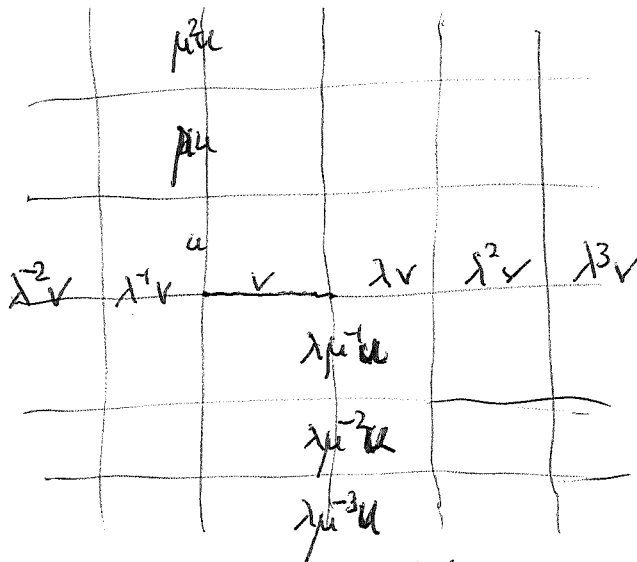 μ²u
μu
u
λ⁻²v λ⁻¹v v λv λ²v λ³v
λμ⁻¹u
λμ⁻²u
λμ⁻³u